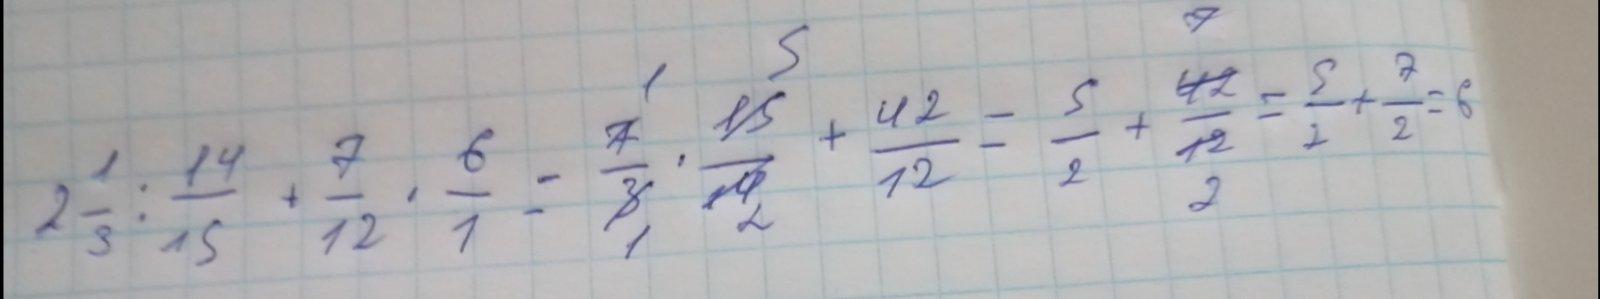 2 1/3 : 14/15 + 7/12 · 6/1 = 7/3 · 15/14 + 42/12 = 5/2 + 42/12 = 5/2 + 7/2 = 6